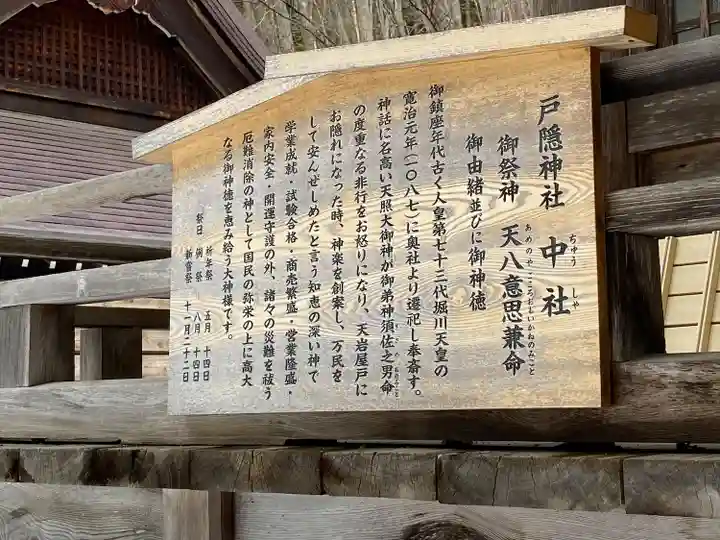 戸隠神社 中社
ちゅう しゃ
御祭神 天八意思兼命
あめのやごころおもいかねのみこと
御由緒並びに御神徳
御鎮座年代古く人皇第七十三代堀川天皇の
寛治元年(一〇八七)に奥社より遷祀し奉斎す。
神話に名高い天照大御神が御弟神須佐之男命
の度重なる非行をお怒りになり、天岩屋戸に
お隠れになった時、神楽を創案し、万民を
して安んぜしめたと言う知恵の深い神で
学業成就・試験合格・商売繁盛・営業隆盛・
家内安全・開運守護の外、諸々の災難を祓う
厄難消除の神として国民の弥栄の上に高大
なる御神徳を恵み給う大神様です。
祈年祭 五月 十四日
祭日 例祭 八月 十四日
新嘗祭 十一月二十二日